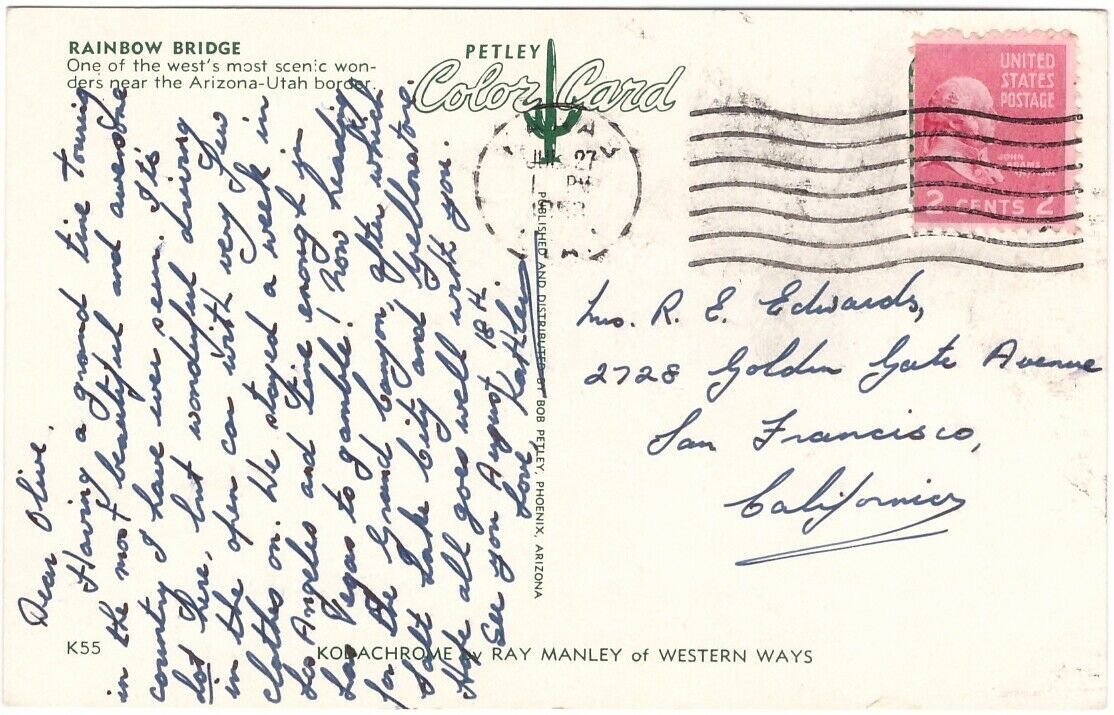 RAINBOW BRIDGE
One of the west's most scenic won-
ders near the Arizona-Utah border.
PETLEY
Color Card
UNITED
STATES
POSTAGE
JOHN
ADAMS
2 CENTS 2
27
PM
Dear Olive,
Having a grand time touring
in the most beautiful and awesome
country I have ever seen. It's
hot here, but wonderful driving
in the open car with very few
clothes on. We stayed a week in
Los Angeles and time enough in
Las Vegas to gamble! Now heading
for the Grand Canyon, after which
Salt Lake City and Yellowstone.
Hope all goes well with you.
See you August 18th.
Love, Kathleen
PUBLISHED AND DISTRIBUTED BY BOB PETLEY, PHOENIX, ARIZONA
Mrs. R. E. Edwards,
2728 Golden Gate Avenue
San Francisco,
California
K55
KODACHROME by RAY MANLEY of WESTERN WAYS